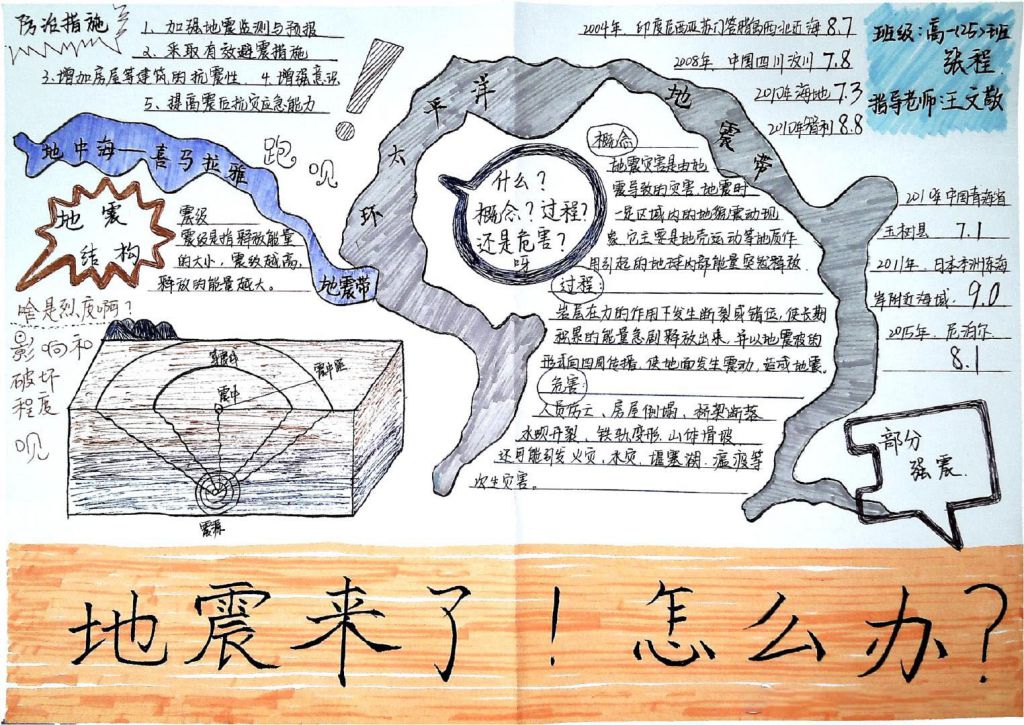 防治措施
1、加强地震监测与预报
2、采取有效避震措施
3.增加房屋等建筑的抗震性、4.增强意识
5、提高震后抗灾应急能力
地中海—喜马拉雅
地震带
跑
呗
环太平洋地震带
地震
结构
震级
震级是指释放能量
的大小，震级越高，
释放的能量越大。
啥是烈度啊？
影响和
破坏
程度
呗
等震线
震中
震中距
震源
什么？
概念？过程？
还是危害？
呀
概念
地震灾害是由地
震导致的灾害.地震时
一定区域内的地貌震动现
象，它主要是地壳运动等地质作
用引起的地球内部能量突发释放.
过程:
岩层在力的作用下发生断裂或错位，使长期
积累的能量急剧释放出来，并以地震波的
形式向四周传播，使地面发生震动，造成地震。
危害:
人员伤亡、房屋倒塌、桥梁断落
水坝开裂、铁轨变形.山体滑坡
还可能引发火灾、水灾、堰塞湖、瘟疫等
次生灾害。
2004年，印度尼西亚苏门答腊岛西北近海 8.7
2008年 中国四川汶川 7.8
2010年海地 7.3
2010年智利 8.8
班级:高一(25)班
张程
指导老师:王文敬
2010年中国青海省
玉树县 7.1
2011年、日本本州东海
岸附近海域. 9.0
2015年、尼泊尔
8.1
部分
强震
地震来了！怎么办？